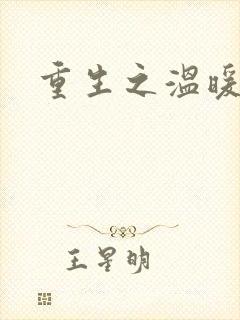 重生之温暖
王星明